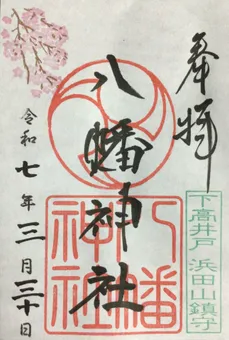 奉拝
八幡神社
八幡
神社
下高井戸 浜田山鎮守
令和七年三月三十日